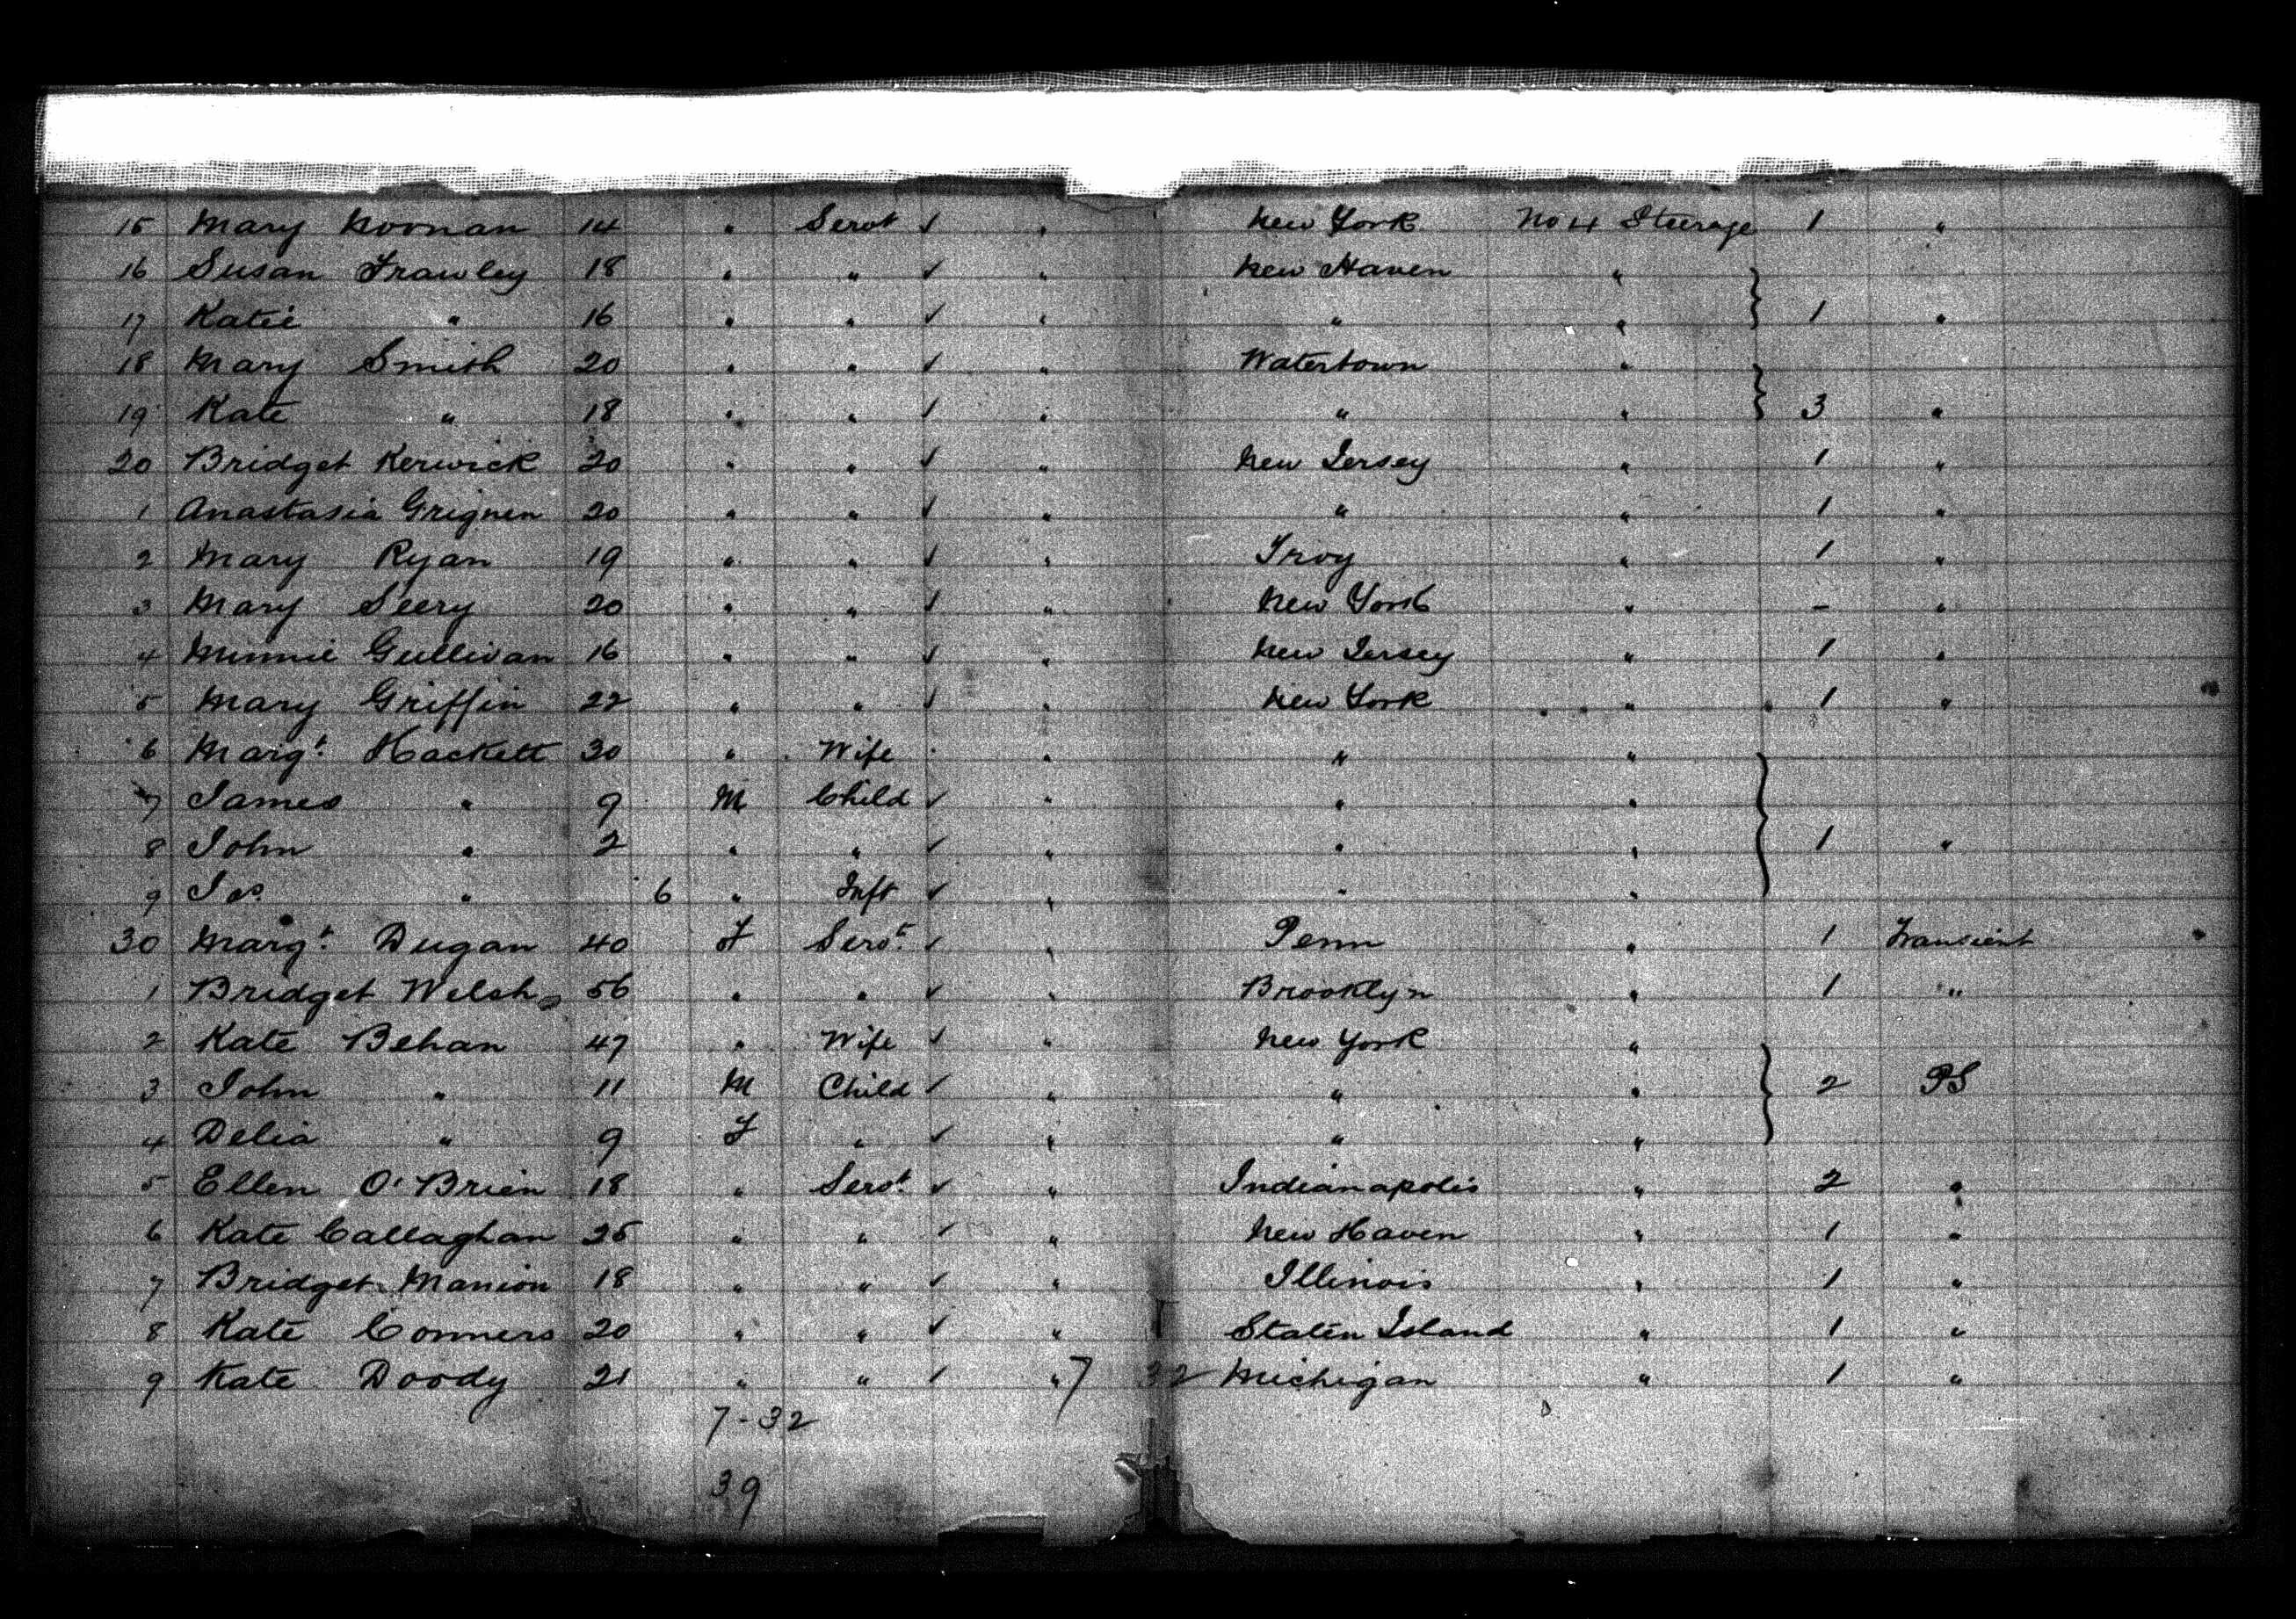 15 Mary Noonan 14 " Servt ✓ " New York No 4 Steerage 1 "
16 Susan Frawley 18 " " ✓ " New Haven "
17 Katie " 16 " " ✓ " " " } 1 "
18 Mary Smith 20 " " ✓ " Watertown "
19 Kate " 18 " " ✓ " " " } 3 "
20 Bridget Kerwick 20 " " ✓ " New Jersey " 1 "
1 Anastasia Grignen 20 " " ✓ " " " 1 "
2 Mary Ryan 19 " " ✓ " Troy " 1 "
3 Mary Seery 20 " " ✓ " New York " - "
4 Minnie Gullivan 16 " " ✓ " New Jersey " 1 "
5 Mary Griffin 22 " " ✓ " New York " 1 "
6 Margt. Hackett 30 " Wife " " "
7 James " 9 M Child ✓ " " "
8 John " 2 " " ✓ " " " } 1 "
9 Jas. " 6 " Inft ✓ " " "
30 Margt. Dugan 40 F Servt. ✓ " Penn " 1 Transient
1 Bridget Welsh 56 " " ✓ " Brooklyn " 1 "
2 Kate Behan 47 " Wife ✓ " New York "
3 John " 11 M Child ✓ " " " } 2 PS
4 Delia " 9 F " ✓ " " "
5 Ellen O'Brien 18 " Servt. ✓ " Indianapolis " 2 "
6 Kate Callaghan 25 " " ✓ " New Haven " 1 "
7 Bridget Manion 18 " " ✓ " Illinois " 1 "
8 Kate Conners 20 " " ✓ " Staten Island " 1 "
9 Kate Doody 21 " " ✓ " 7 32 Michigan " 1 "
7-32
39